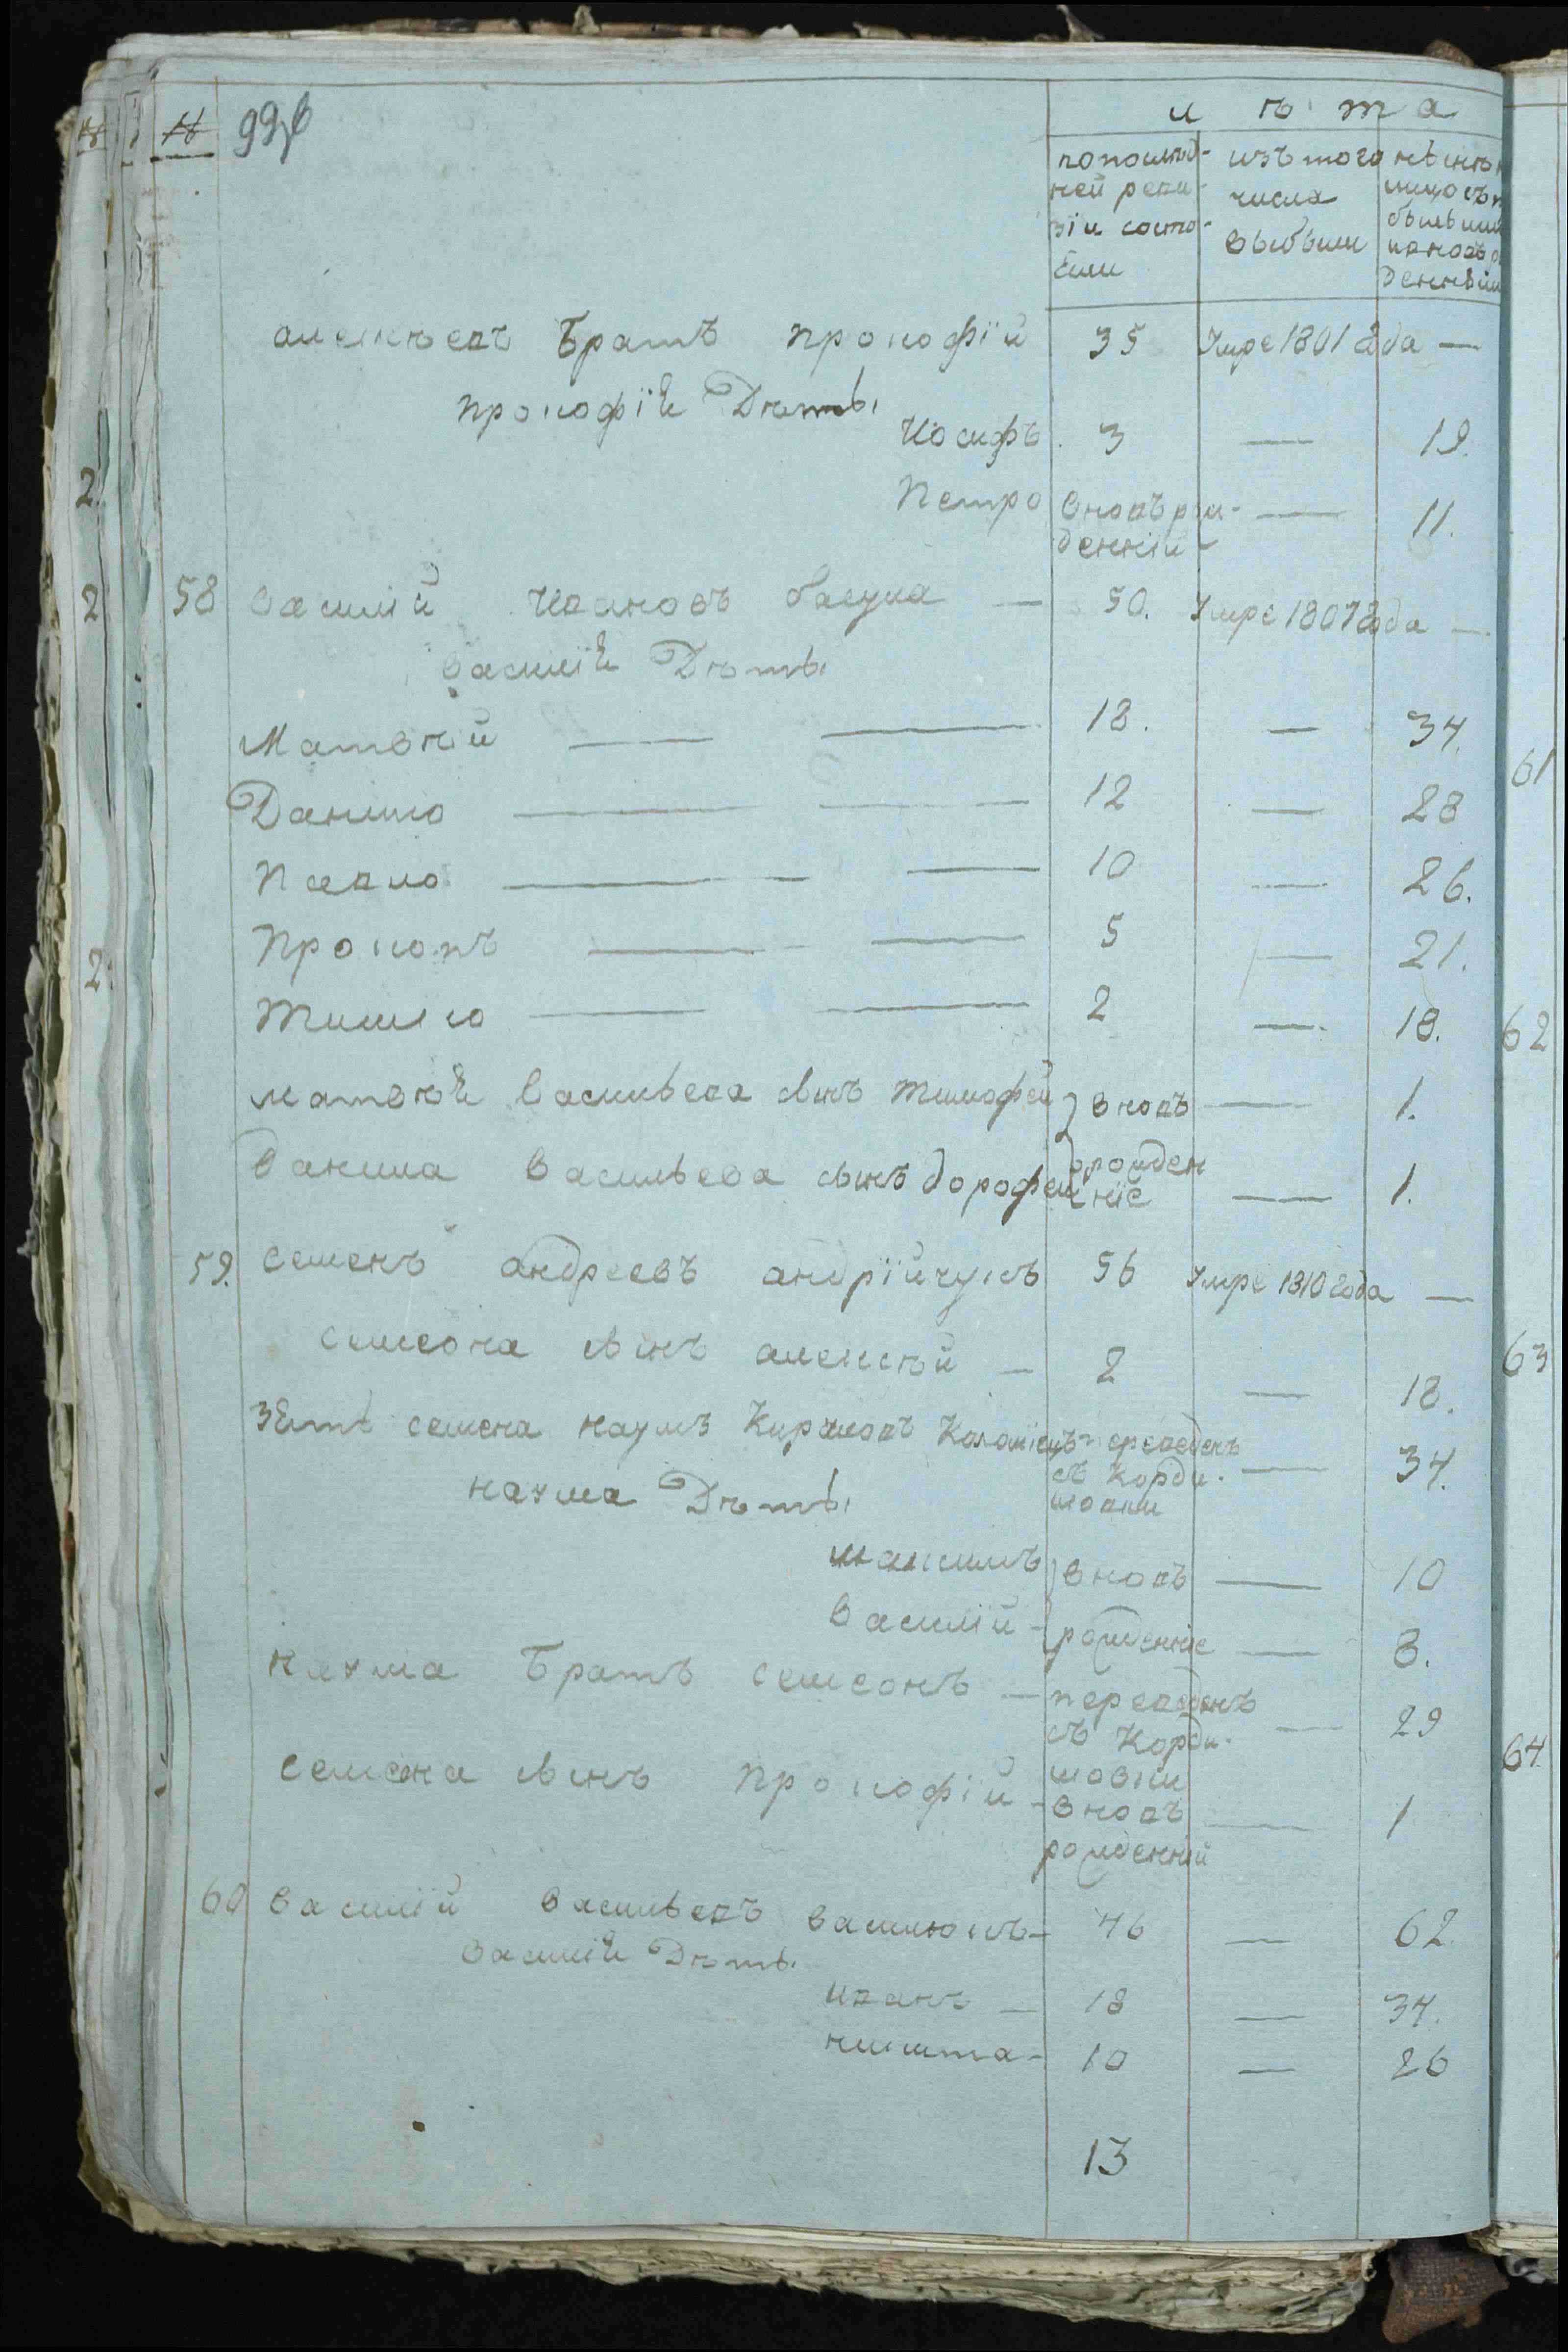 № 99об
лѣта
попослѣд-
ней реви-
зіи состо-
яли
изъ того
числа
выбыли
нынѣ на
лицо съ п
бывшими
и вновь ро
денными
алексѣевъ братъ прокофїй 35 Умре 1801 года —
прокофїя Дѣты
Иосифъ 3 — 19.
Петро вновь рож-
денній — 11.
58 василій Ивановъ басука — 50. Умре 1807 года —
василїя Дѣты
Матвѣй — — 18. — 34.
Данило — — 12 — 28
Павло — — 10 — 26.
Прокопъ — — 5 — 21.
Тишко — — 2 — 18.
матвѣя васильева сынъ тимофей } вновь — 1.
данила васильева сынъ дорофей рожден
ніе — 1.
59. семенъ андреевъ андрїйчукъ 56 Умре 1810 года —
семеона сынъ алексѣй — 2 — 18.
зять семена наумъ Кириловъ Коломїецъ переведенъ
съ Корди-
шовки — 34.
наума Дѣты
максимъ } вновь — 10
василїй — рожденніе — 8.
наума братъ семеонъ — переведенъ
съ Корди-
шовки — 29
семеона сынъ прокофїй — вновь
рожденній — 1
60 василїй васильевъ василюкъ — 46 — 62
василїя Дѣты
иванъ — 18 — 34.
никита — 10 — 26
13
2.
2
2.
61
62
63
64